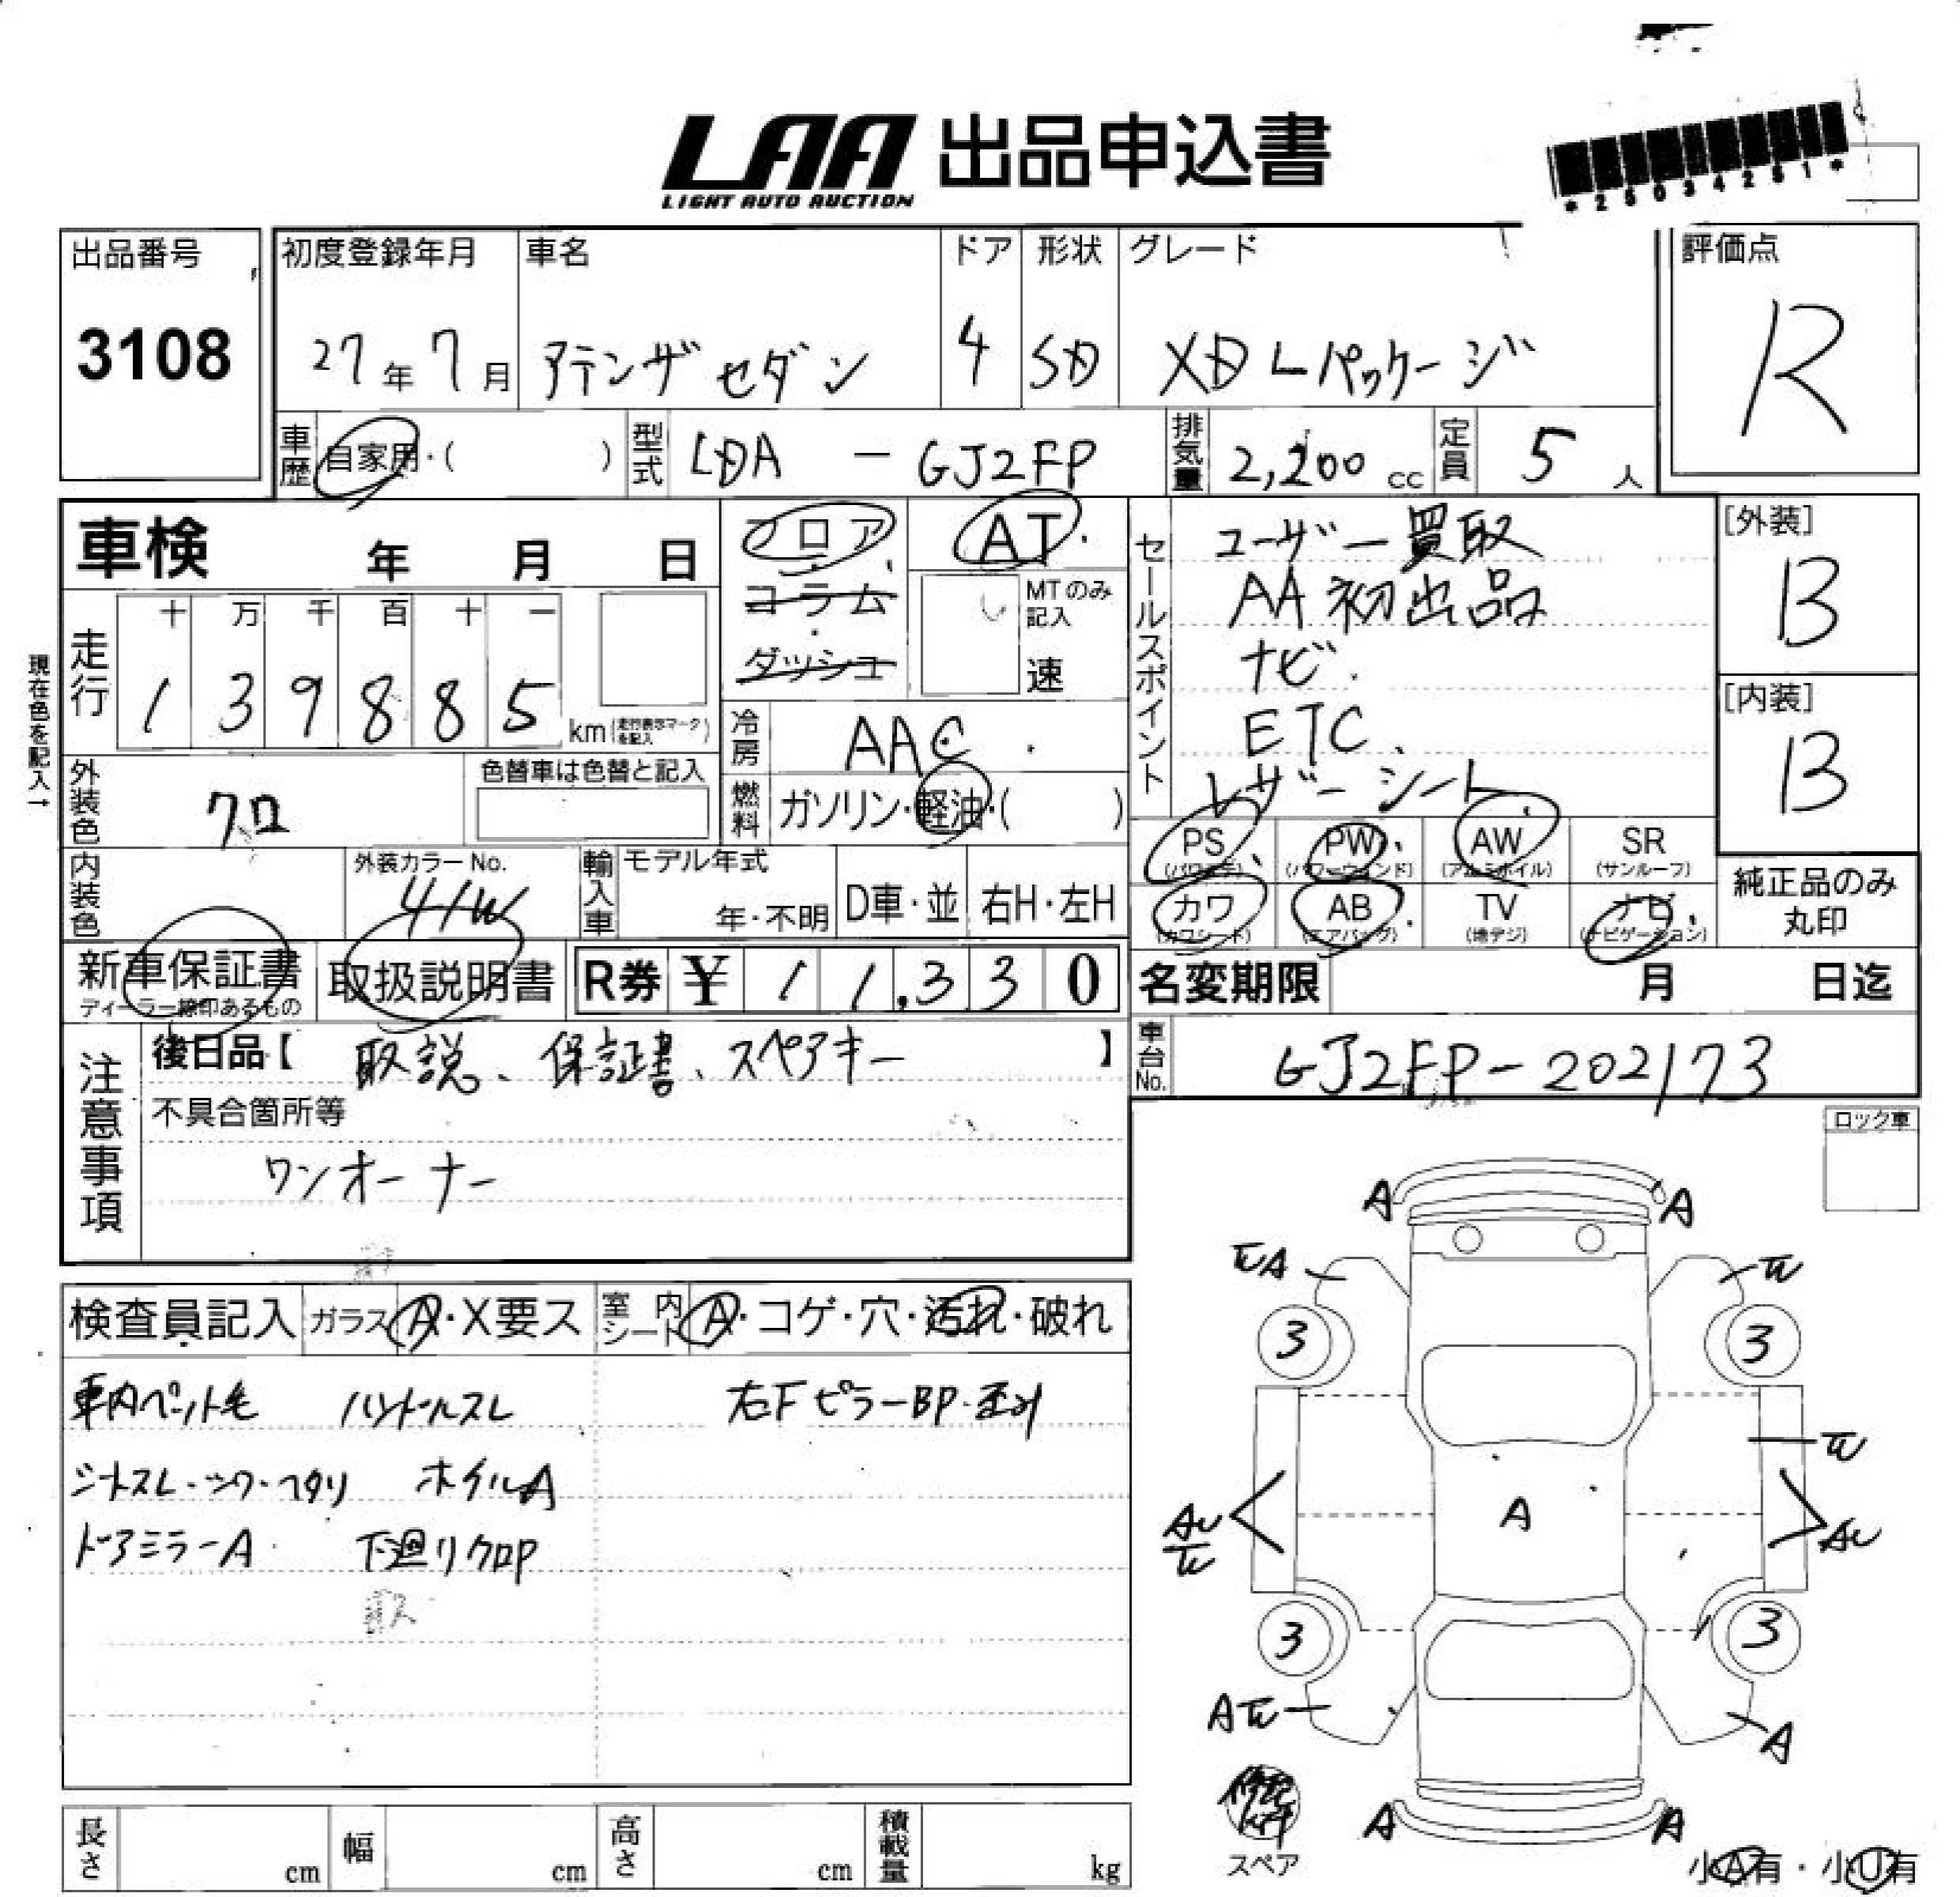 LAA 出品申込書
LIGHT AUTO AUCTION
*25034251*
出品番号
3108
初度登録年月
27年7月
車名
アテンザ セダン
ドア
4
形状
SD
グレード
XD Lパッケージ
評価点
R
車歴 自家用・( )
型式 LDA - GJ2FP
排気量 2,200 cc
定員 5 人
車検 年 月 日
フロア・
コラム
・
ダッシュ
AT・
MTのみ記入
速
セールスポイント
ユーザー買取
AA初出品
ナビ.
ETC、
レザーシート
[外装]
B
[内装]
B
現在色を記入→
走行
十 万 千 百 十 一
1 3 9 8 8 5 km(走行表示マークを記入)
冷房 AAC
燃料 ガソリン・軽油・( )
外装色 クロ
色替車は色替と記入
内装色
外装カラーNo.
41W
輸入車
モデル年式
年・不明
D車・並
右H・左H
PS (パワステ)
PW (パワーウィンド)
AW (アルミホイル)
SR (サンルーフ)
カワ (カワシート)
AB (エアバッグ)
TV (地デジ)
ナビ (ナビゲーション)
純正品のみ
丸印
新車保証書
ディーラー捺印あるもの
取扱説明書
R券 ¥ 1 1,3 3 0
名変期限 月 日迄
車台No. GJ2FP-202173
注意事項
後日品【 取説、保証書、スペアキー 】
不具合箇所等
ワンオーナー
ロック車
検査員記入
ガラス A・X要ス
室内シート A・コゲ・穴・汚れ・破れ
車内ペット毛 ハンドルスレ
右FピラーBP・歪み
シートスレ・シワ・ヘタリ ホイルA
ドアミラーA 下廻りクロP
A A
3 3
A
3 3
A
A A
スペア
小A有・小U有
長さ cm
幅 cm
高さ cm
積載量 kg